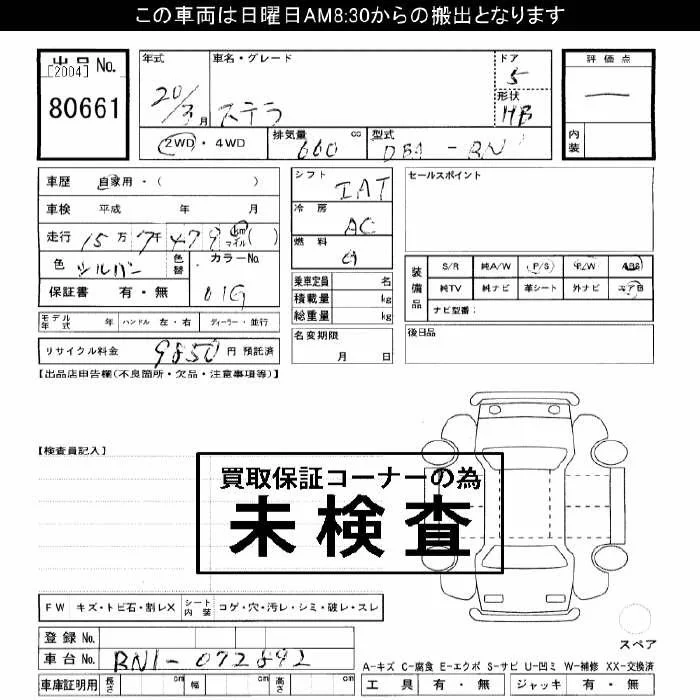 この車両は日曜日AM8:30からの搬出となります
出品 No.
[2004]
80661
年式 車名・グレード ドア 5
20/3月 ステラ 形状 HB
2WD・4WD 排気量 660 cc 型式 DBA-RN1
評価点
一
内装
車歴 自家用・( )
車検 平成 年 月
走行 15万7千479 km マイル ( )
色 シルバー 色替 カラーNo. 01G
保証書 有・無
シフト IAT
冷房 AC
燃料 G
乗車定員 名
積載量 kg
総重量 kg
名変期限
月 日
セールスポイント
装備品 S/R 純A/W P/S P/W ABS
純TV 純ナビ 革シート 外ナビ エアB
ナビ型番:
後日品
モデル年式 年 ハンドル 左・右 ディーラー・並行
リサイクル料金 9850 円 預託済
【出品店申告欄(不良箇所・欠品・注意事項等)】
【検査員記入】
買取保証コーナーの為
未検査
FW キズ・トビ石・割レX シート内装 コゲ・穴・汚レ・シミ・破レ・スレ
スペア
登録 No.
車台 No. RN1-072892
車庫証明用 長さ cm 幅 cm 高さ cm
A-キズ C-腐食 E-エクボ S-サビ U-凹ミ W-補修 XX-交換済
工具 有・無 ジャッキ 有・無